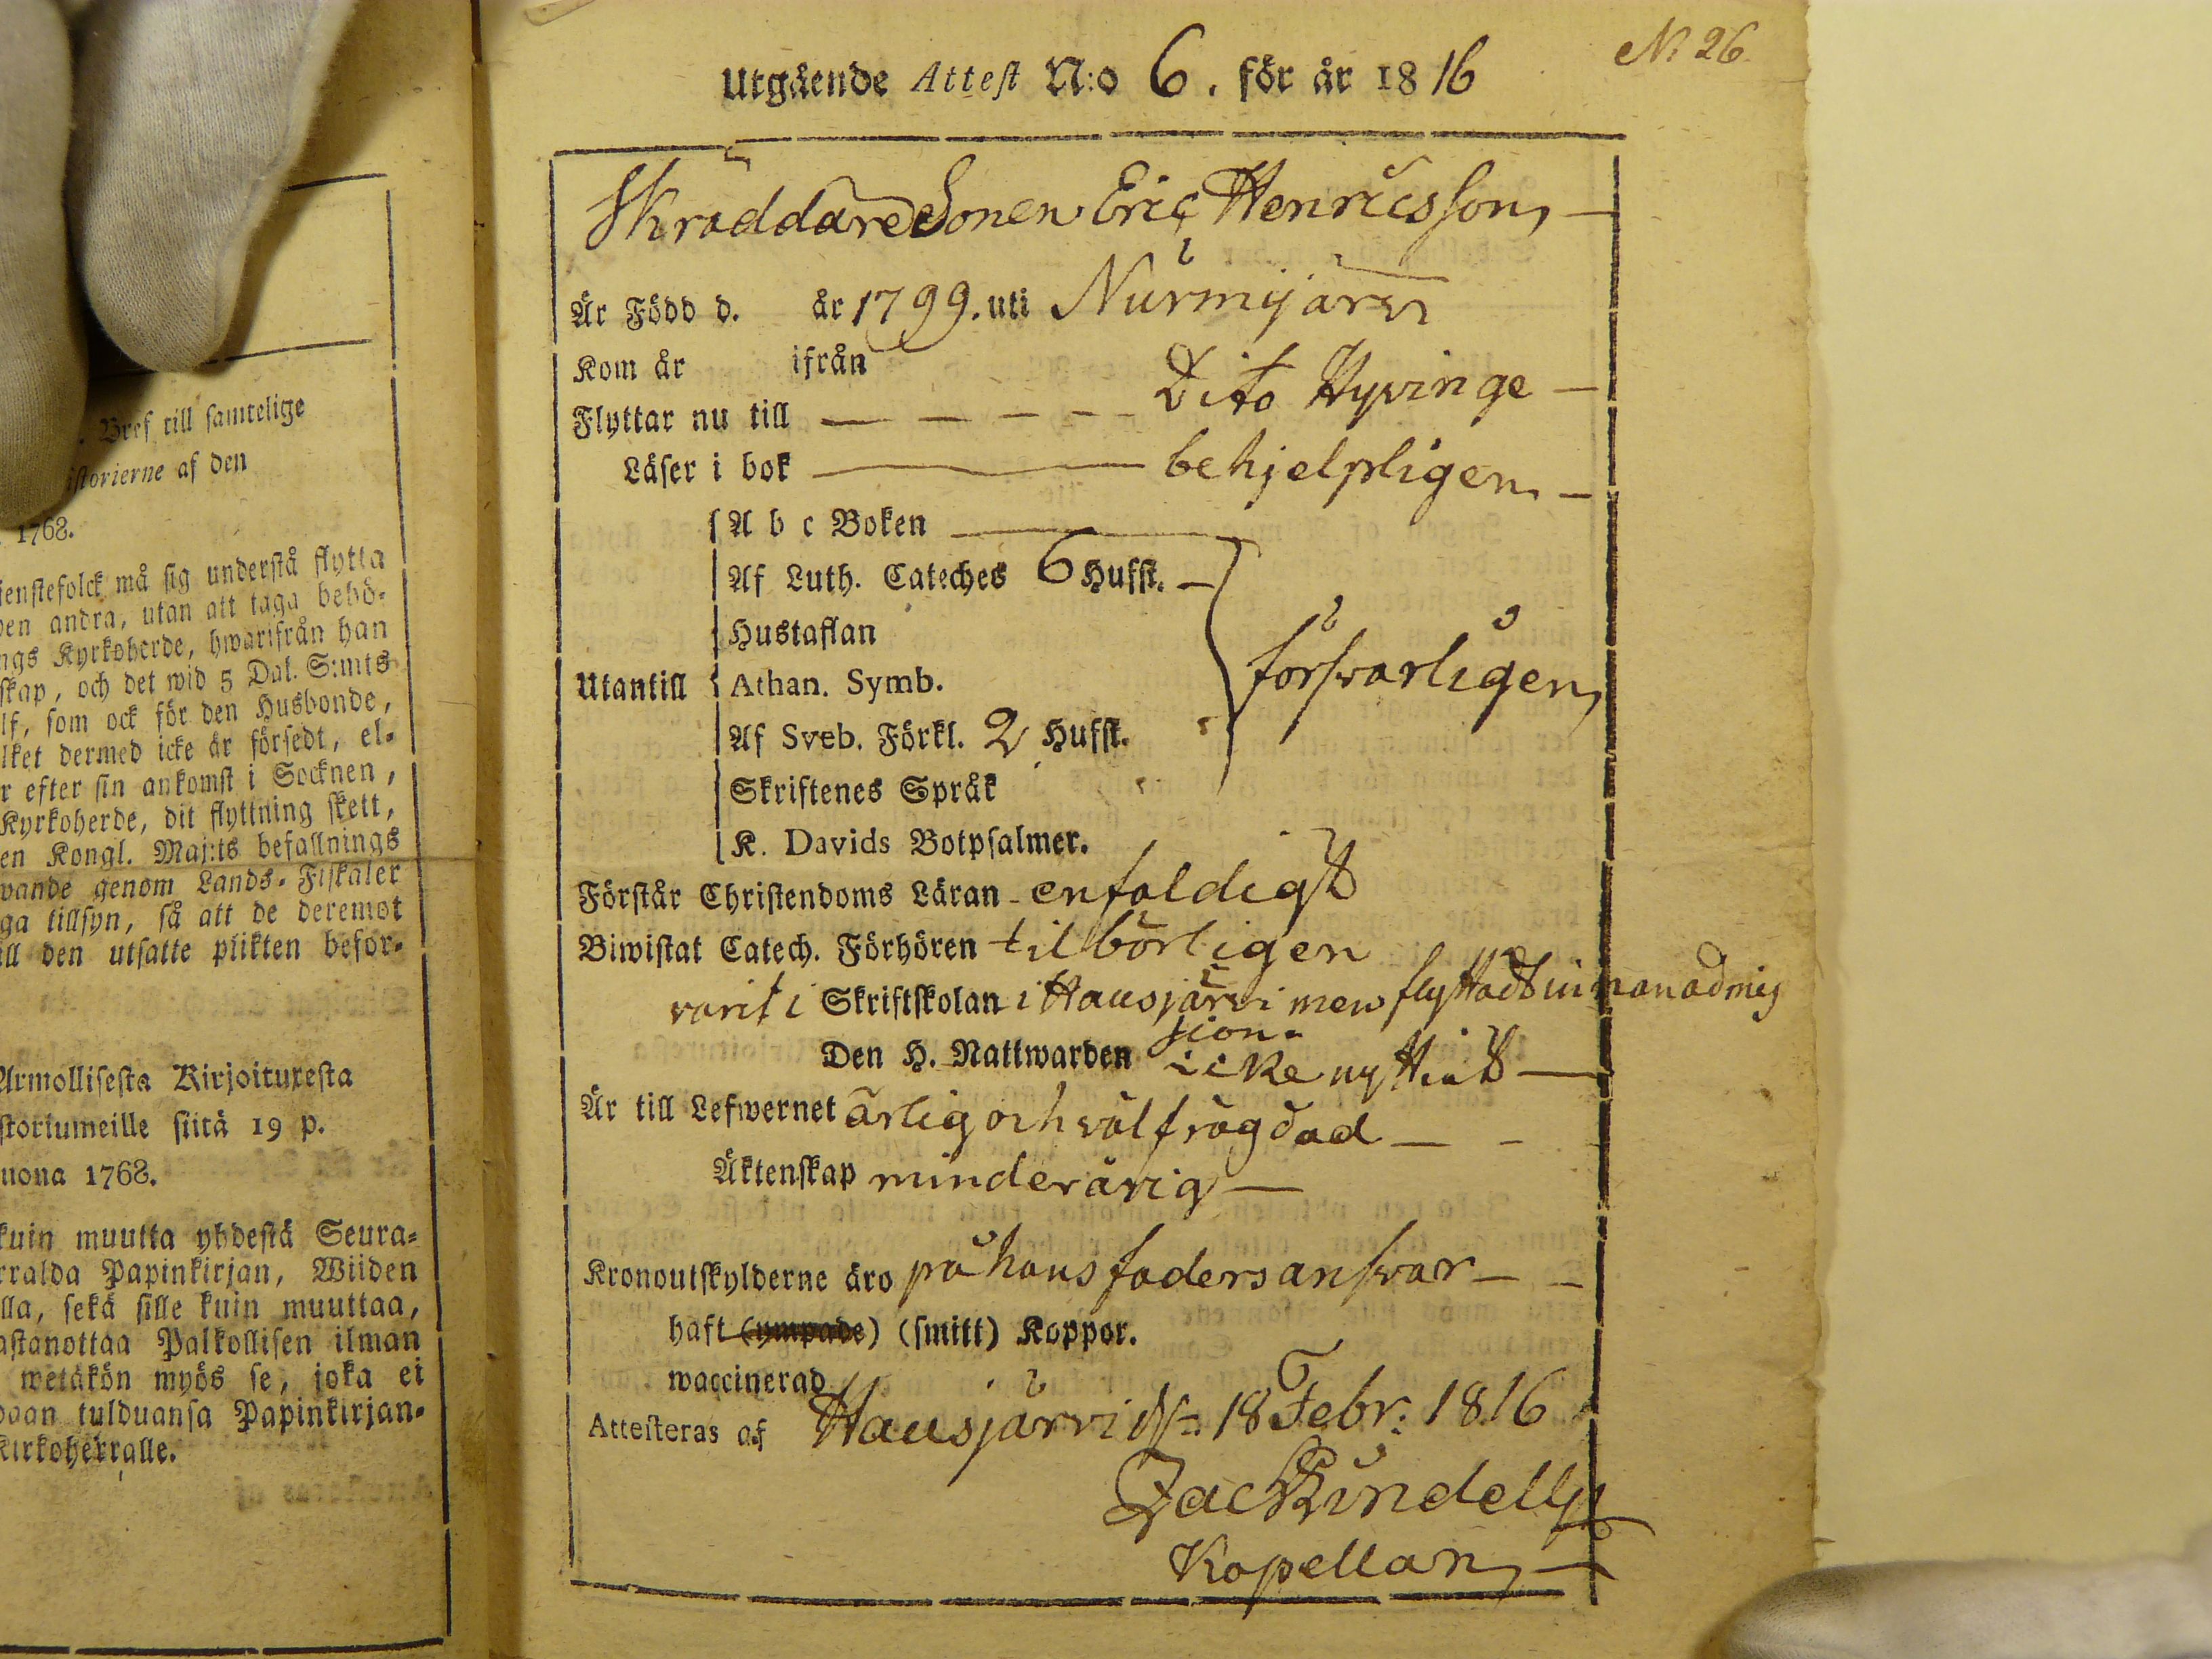 . Bref till samtelige
istorierne af den
1768.
ienstefolck må sig understå flytta
den andra, utan att taga behö-
ngs Kyrkoherde, hwarifrån han
skap, och det wid 5 Dal. S:mts
lf, som ock för den Husbonde,
lket dermed icke är försedt, el-
r efter sin ankomst i Socknen,
Kyrkoherde, dit flyttning skett,
en Kongl. Maj:ts befallnings
vande genom Lands-Fiskaler
ga tillsyn, så att de deremot
ill den utsatte plikten befor-
Armollisesta Kirjoituxesta
storiumeille siitä 19 p.
uona 1768.
kuin muutta yhdestä Seura-
rralda Papinkirjan, Wiiden
lla, sekä sille kuin muuttaa,
astanottaa Palkollisen ilman
wetäkön myös se, joka ei
daan tulduansa Papinkirjan-
kirkoherralle.
N: 26
Utgående Attest N:o 6. för år 1816
Skräddare Sonen Eric Henricsson,
Är Född d. år 1799. uti Nurmijärvi
Kom år ifrån
Flyttar nu till — — — — Dito Hyvinge —
Läser i bok — behjelpligen. —
A b c Boken —
Af Luth. Cateches 6 Hufst. —
Hustaflan
Utantill Athan. Symb. försvarligen,
Af Sveb. Förkl. 2 Hufst.
Skriftenes Språk
K. Davids Botpsalmer.
Förstår Christendoms Läran - enfaldigt
Biwistat Catech. Förhören tilbörligen
varit i Skriftskolan i Hausjärvi men flyttadt in nan admis
sion.
Den H. Nattwarden icke nyttiat —
Är till Lefwernet ärlig och välfrägdad — -
Äktenskap minderårig —
Kronoutskylderne äro på hans faders ansvar — -
haft (ympade) (smitt) Koppor.
waccinerad
Attesteras af Hausjärvi d. 18 Febr: 1816
Zach Rundell
Kapellan, —